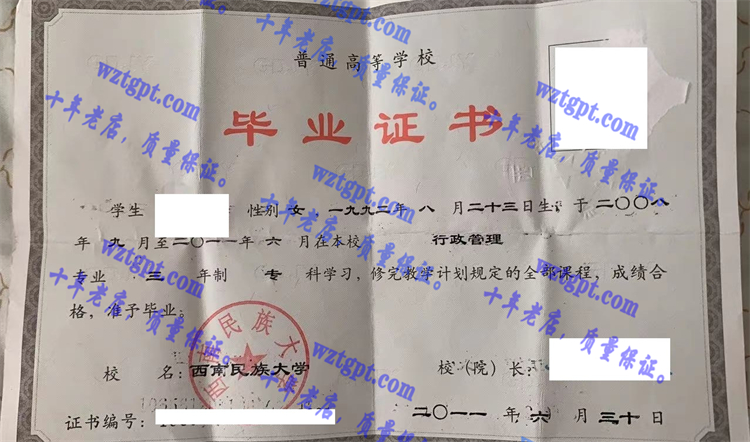 普通高等学校
毕业证书
学生 性别 女,一九九二年 八 月二十三日生,于二〇〇八
年 九 月至二〇一一年 六 月在本校 行政管理
专业 三 年制 专 科学习,修完教学计划规定的全部课程,成绩合
格,准予毕业。
校 名:西南民族大学 校(院)长:
证书编号:
二〇一一 年 六 月 三十 日
西南民族大
wztgpt.com
十年老店,质量保证。
wztgpt.com
十年老店,质量保证。
wztgpt.com
十年老店,质量保证。
wztgpt.com
十年老店,质量保证。
wztgpt.com
十年老店,质量保证。
wztgpt.com
十年老店,质量保证。